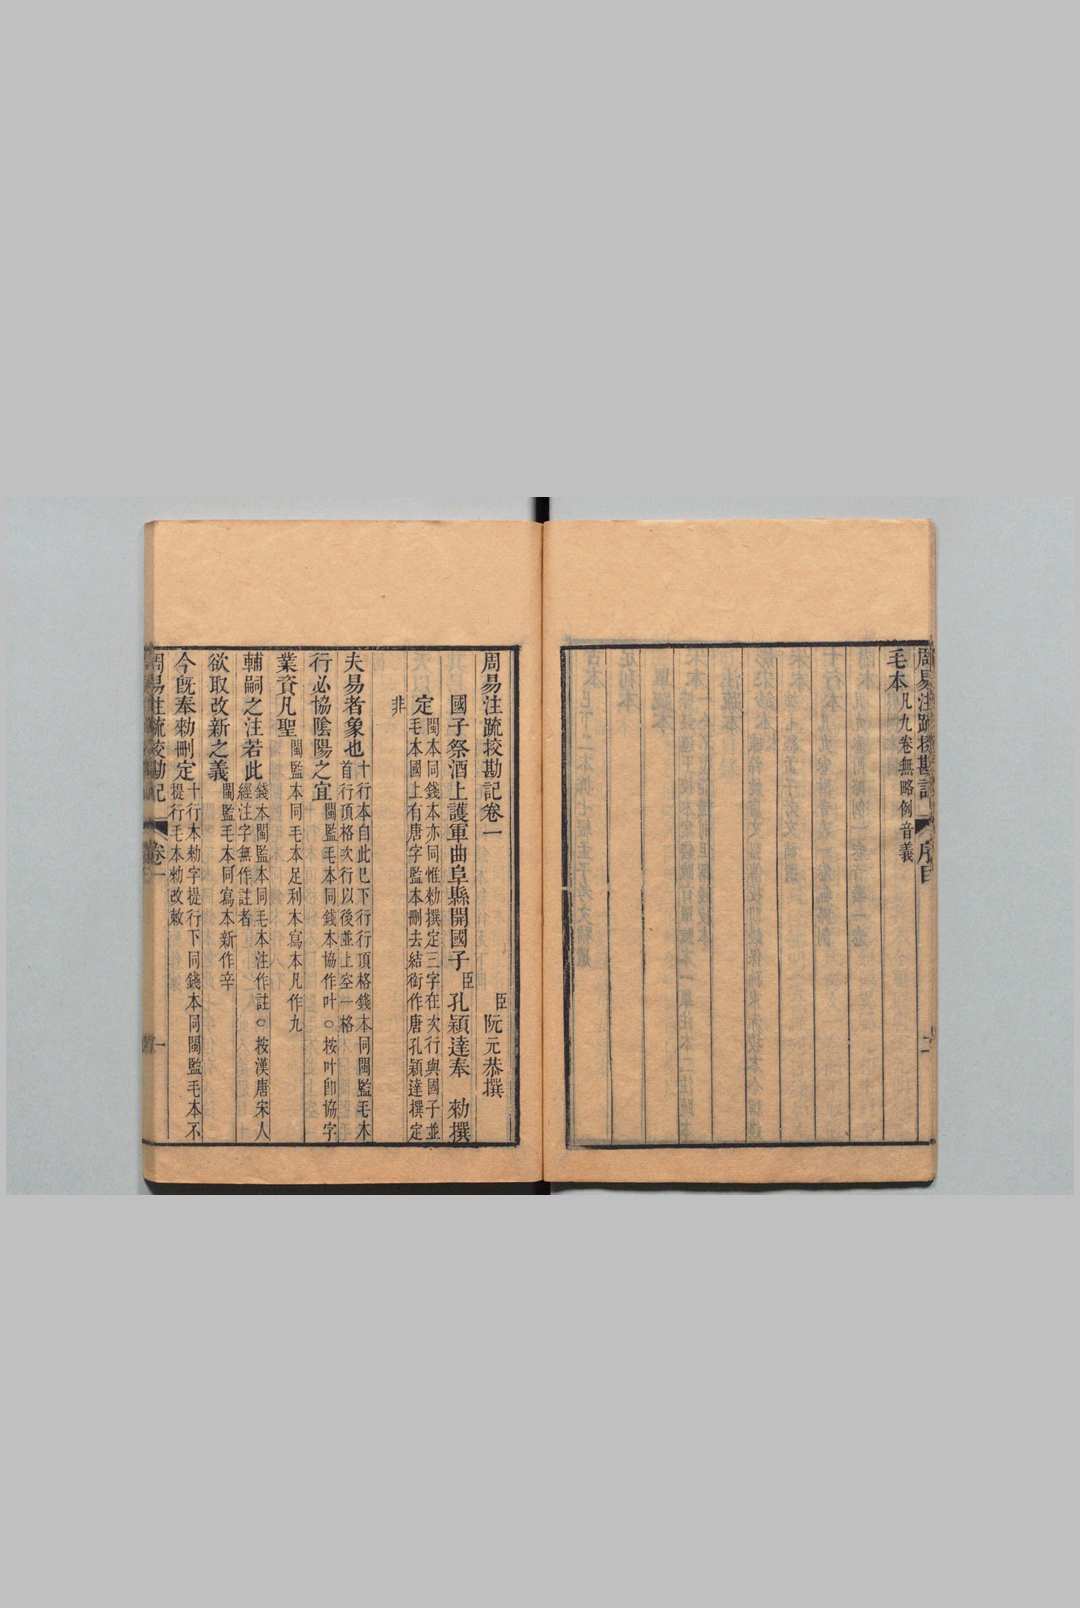 周易注疏挍勘記 序目 二
毛本凡九卷無略例音義
周易注疏挍勘記卷一
臣阮元恭撰
國子祭酒上護軍曲阜縣開國子臣孔穎達奉 勑撰
定閩本同錢本亦同惟勑撰定三字在次行與國子並
毛本國上有唐字監本刪去結銜作唐孔穎達撰定
非
夫易者象也十行本自此已下行行頂格錢本同閩監毛本
首行頂格次行以後並上空一格
行必協陰陽之宜閩監毛本同錢本協作叶○按叶卽協字
業資凡聖閩監本同毛本足利本寫本凡作九
輔嗣之注若此錢本閩監本同毛本注作註○按漢唐宋人
經注字無作註者
欲取改新之義閩監毛本同寫本新作辛
今旣奉勑刪定十行本勑字提行下同錢本同閩監毛本不
提行毛本勑改敕
周易注疏挍勘記 卷一 一